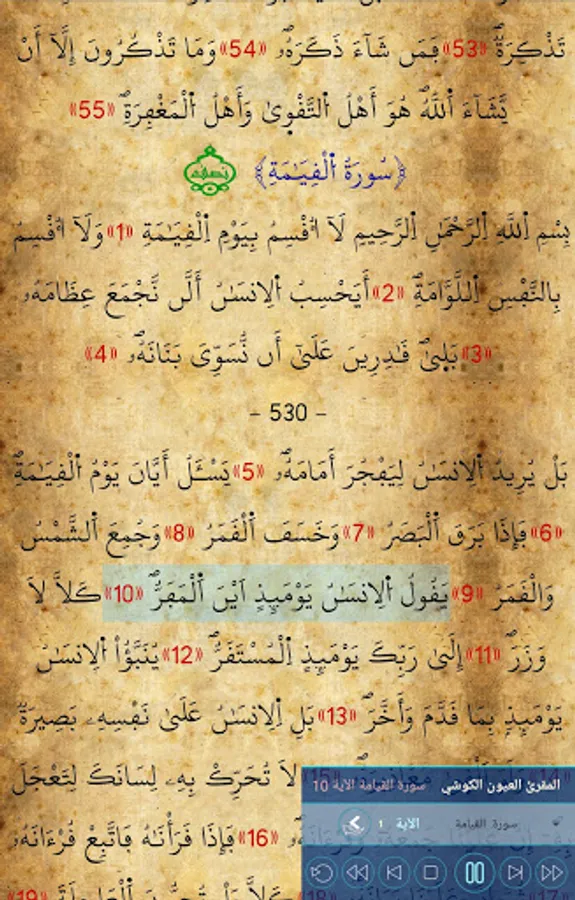 تَذْكِرَةٌ «53» فَمَن شَآءَ ذَكَرَهُۥ «54» وَمَا تَذْكُرُونَ إِلَّآ أَنْ
يَّشَآءَ اَ۬للَّهُ هُوَ أَهْلُ اُ۬لتَّقْوِىٰ وَأَهْلُ اُ۬لْمَغْفِرَةِ «55»
﴿سُورَةُ اُ۬لْقِيَٰمَةِ﴾ نصف
بِسْمِ اِ۬للَّهِ اِ۬لرَّحْمَٰنِ اِ۬لرَّحِيمِ لَآ أُقْسِمُ بِيَوْمِ اِ۬لْقِيَٰمَةِ «1» وَلَآ أُقْسِمُ
بِالنَّفْسِ اِ۬للَّوَّامَةِ «2» أَيَحْسِبُ اُ۬لِانسَٰنُ أَلَّن نَّجْمَعَ عِظَامَهُۥ
«3» بَلِىٰ قَٰدِرِينَ عَلَىٰٓ أَن نُّسَوِّىَ بَنَانَهُۥ «4»
- 530 -
بَلْ يُرِيدُ اُ۬لِانسَٰنُ لِيَفْجُرَ أَمَامَهُۥ «5» يَسْـَٔلُ أَيَّانَ يَوْمُ اُ۬لْقِيَٰمَةِ
«6» فَإِذَا بَرَقَ اَ۬لْبَصَرُ «7» وَخَسَفَ اَ۬لْقَمَرُ «8» وَجُمِعَ اَ۬لشَّمْسُ
وَالْقَمَرُ «9» يَقُولُ اُ۬لِانسَٰنُ يَوْمَئِذٍ اَيْنَ اَ۬لْمَفَرُّ «10» كَلَّا لَا
وَزَرَ «11» إِلَىٰ رَبِّكَ يَوْمَئِذٍ اِ۬لْمُسْتَقَرُّ «12» يُنَبَّؤُاْ اُ۬لِانسَٰنُ
يَوْمَئِذٍ بِمَا قَدَّمَ وَأَخَّرَ «13» بَلِ اِ۬لِانسَٰنُ عَلَىٰ نَفْسِهِۦ بَصِيرَةٌ
لَا تُحَرِّكْ بِهِۦ لِسَانَكَ لِتَعْجَلَ
«16» فَإِذَا قَرَأْنَٰهُ فَاتَّبِعْ قُرْءَانَهُۥ
المقرئ العيون الكوشي سورة القيامة الآية 10
سورة القيامة الآية 1